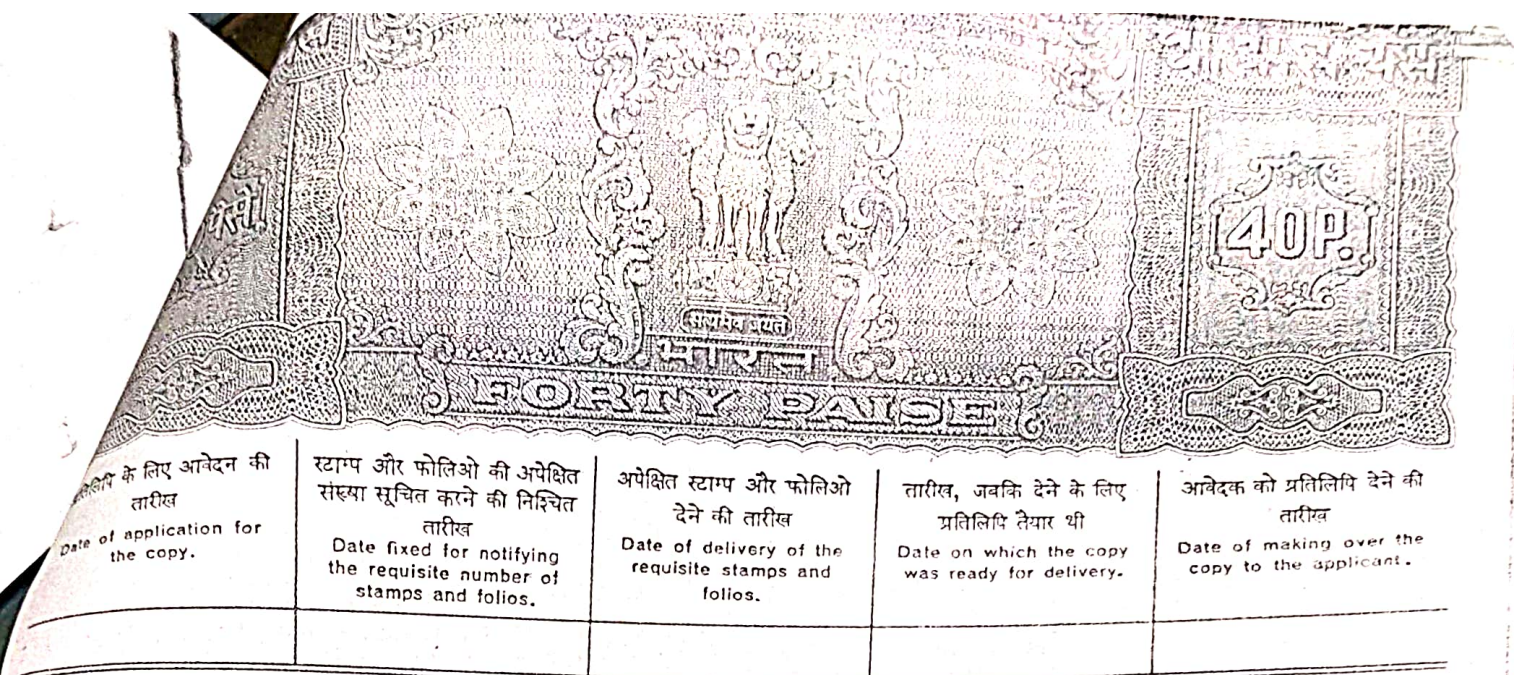 40P.
सत्यमेव जयते
भारत
FORTY PAISE
के लिए आवेदन की
तारीख
Date of application for
the copy.
स्टाम्प और फोलिओ की अपेक्षित
संख्या सूचित करने की निश्चित
तारीख
Date fixed for notifying
the requisite number of
stamps and folios.
अपेक्षित स्टाम्प और फोलिओ
देने की तारीख
Date of delivery of the
requisite stamps and
folios.
तारीख, जबकि देने के लिए
प्रतिलिपि तैयार थी
Date on which the copy
was ready for delivery.
आवेदक को प्रतिलिपि देने की
तारीख
Date of making over the
copy to the applicant.